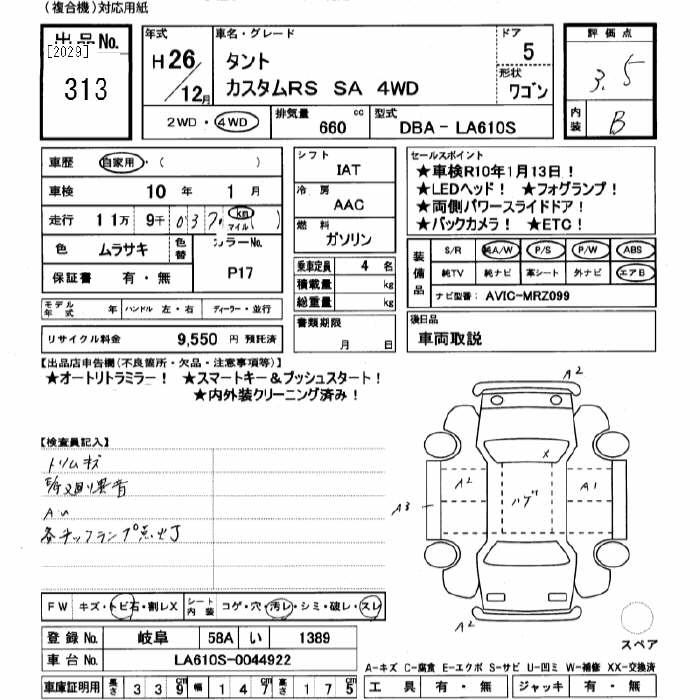 (複合機)対応用紙
出品No.
[2029]
313
年式
H26/12月
車名・グレード
タント
カスタムRS SA 4WD
ドア
5
形状
ワゴン
評価点
3.5
内装
B
2WD・4WD
排気量
660 cc
型式
DBA-LA610S
車歴 自家用・( )
車検 10年 1月
走行 11万 9千 km マイル( )
色 ムラサキ 色替 カラーNo.
P17
保証書 有・無
モデル年式 年 ハンドル 左・右 ディーラー・並行
リサイクル料金 9,550 円 預託済
シフト
IAT
冷房
AAC
燃料
ガソリン
乗車定員 4 名
積載量 kg
総重量 kg
書類期限
月 日
セールスポイント
★車検R10年1月13日!
★LEDヘッド! ★フォグランプ!
★両側パワースライドドア!
★バックカメラ! ★ETC!
装備品
S/R 純A/W P/S P/W ABS
純TV 純ナビ 革シート 外ナビ エアB
ナビ型番: AVIC-MRZ099
後日品
車両取説
【出品店申告欄(不良箇所・欠品・注意事項等)】
★オートリトラミラー! ★スマートキー&プッシュスタート!
★内外装クリーニング済み!
【検査員記入】
トリムキズ
異音
AU
各チップランプ点灯
A2
X
A2
ハゲ
A1
A3
A2
スペア
FW キズ・トビ石・割レX シート内装 コゲ・穴・汚レ・シミ・破レ・スレ
登録No. 岐阜 58A い 1389
車台No. LA610S-0044922
車庫証明用 長さ 339cm 幅 147cm 高さ 175cm
A-キズ C-腐食 E-エクボ S-サビ U-凹ミ W-補修 XX-交換済
工具 有・無 ジャッキ 有・無